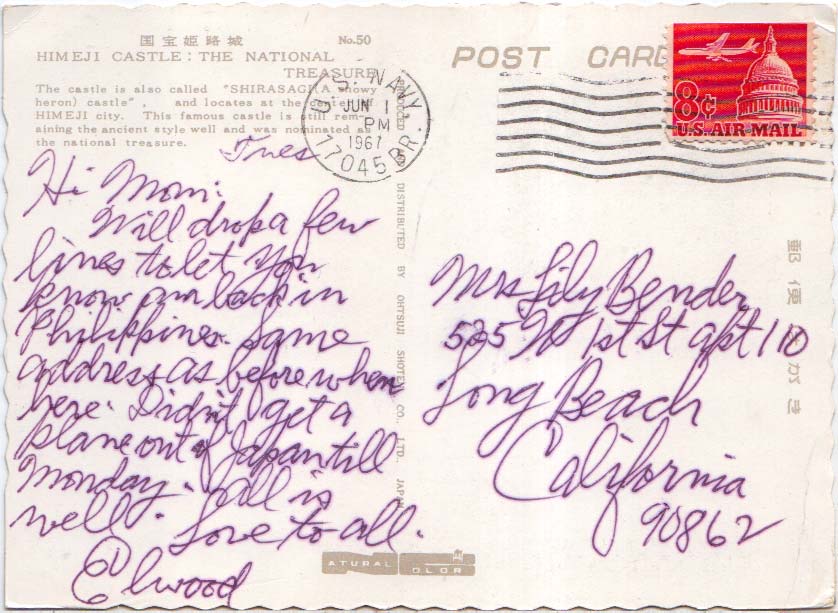 国宝姫路城 No.50
HIMEJI CASTLE : THE NATIONAL
TREASURE
The castle is also called "SHIRASAGI (A snowy
heron) castle", and locates at the center of
HIMEJI city. This famous castle is still rem-
aining the ancient style well and was nominated as
the national treasure.
POST CARD
U.S. NAVY
JUN 1
PM
1967
17045 BR.
8¢
U.S. AIR MAIL
Tues
Hi Mom:
Will drop a few
lines to let you
know am back in
Philippines. Same
address as before when
here. Didn't get a
plane out of Japan till
Monday. All is
well. Love to all.
Elwood
PRODUCED AND DISTRIBUTED BY OHTSUJI SHOTEN CO., LTD., JAPAN
Mrs Lily Bender
525 W 1st St apt 110
Long Beach
California
90862
郵便はがき
ATURAL OLOR